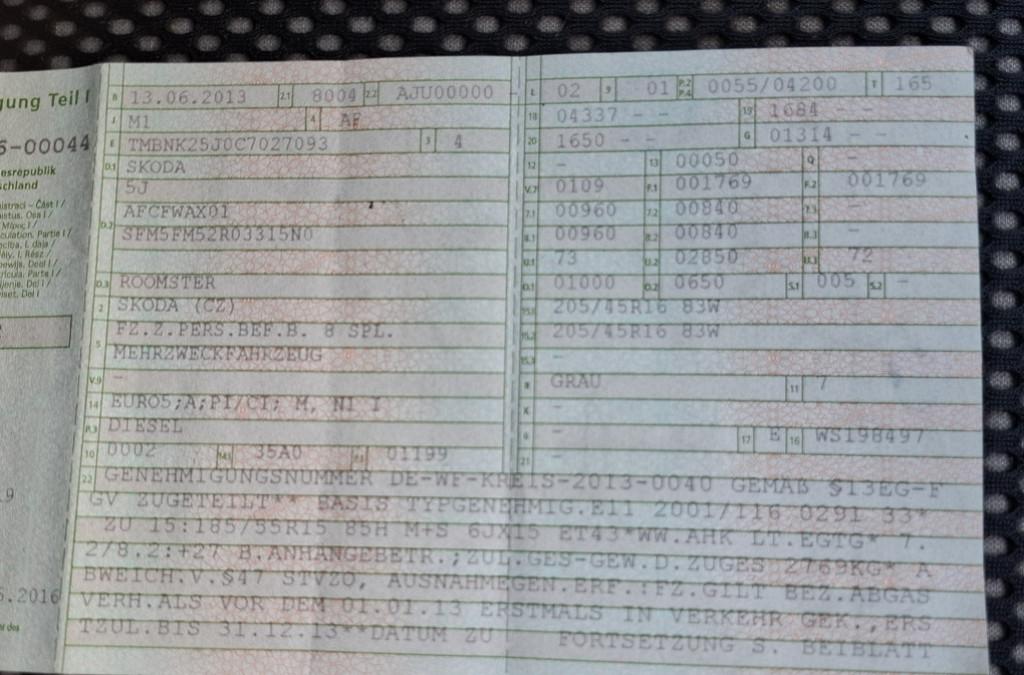 gung Teil I
5-00044
esrepublik
schland
B 13.06.2013 2.1 8004 2.2 AJU00000 -
J M1 4 AF
E TMBNK25J0C7027093 3 4
D.1 SKODA
5J
D.2 AFCFWAX01
SFM5FM52R03315N0
D.3 ROOMSTER
2 SKODA (CZ)
5 FZ.Z.PERS.BEF.B. 8 SPL.
MEHRZWECKFAHRZEUG
V.9 -
14 EURO5;A;PI/CI; M, N1 I
P.3 DIESEL
10 0002 14.1 35A0 P.1 01199
L 02 9 01 P.2 P.4 0055/04200 T 165
18 04337 - - 19 1684 - -
20 1650 - - G 01314 - -
12 - 13 00050 Q -
V.7 0109 F.1 001769 F.2 001769
7.1 00960 7.2 00840 7.3 -
8.1 00960 8.2 00840 8.3 -
U.1 73 U.2 02850 U.3 72
O.1 01000 O.2 0650 S.1 005 S.2 -
15.1 205/45R16 83W
15.2 205/45R16 83W
15.3 -
R GRAU 11 7
K -
6 - 17 E 16 WS198497
21 -
22 GENEHMIGUNGSNUMMER DE-WF-KREIS-2013-0040 GEMAß §13EG-F
GV ZUGETEILT** BASIS TYPGENEHMIG.E11 2001/116 0291 33*
ZU 15:185/55R15 85H M+S 6JX15 ET43*WW.AHK LT.EGTG* 7.
2/8.2:+27 B.ANHÄNGEBETR.;ZUL.GES-GEW.D.ZUGES 2769KG* A
BWEICH.V.§47 STVZO, AUSNAHMEGEN.ERF.:FZ.GILT BEZ.ABGAS
VERH.ALS VOR DEM 01.01.13 ERSTMALS IN VERKEHR GEK.,ERS
TZUL.BIS 31.12.13**DATUM ZU FORTSETZUNG S. BEIBLATT
5.2016